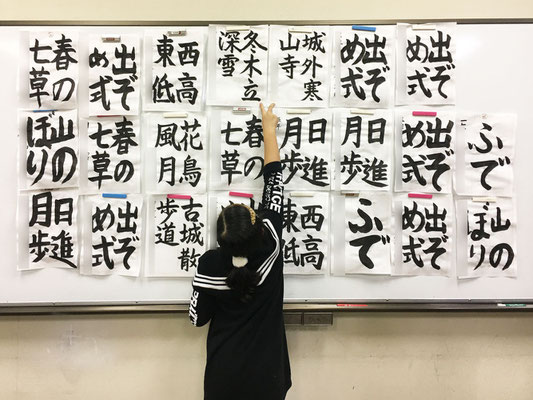 春の
七草
出ぞ
め式
西高
東低
冬木立
深雪
城外寒
山寺
出ぞ
め式
出ぞ
め式
山の
ぼり
春の
七草
花鳥
風月
春の
七草
日進
月歩
日進
月歩
出ぞ
め式
ふで
日進
月歩
出ぞ
め式
古城散
歩道
西高
東低
ふで
出ぞ
め式
山の
ぼり